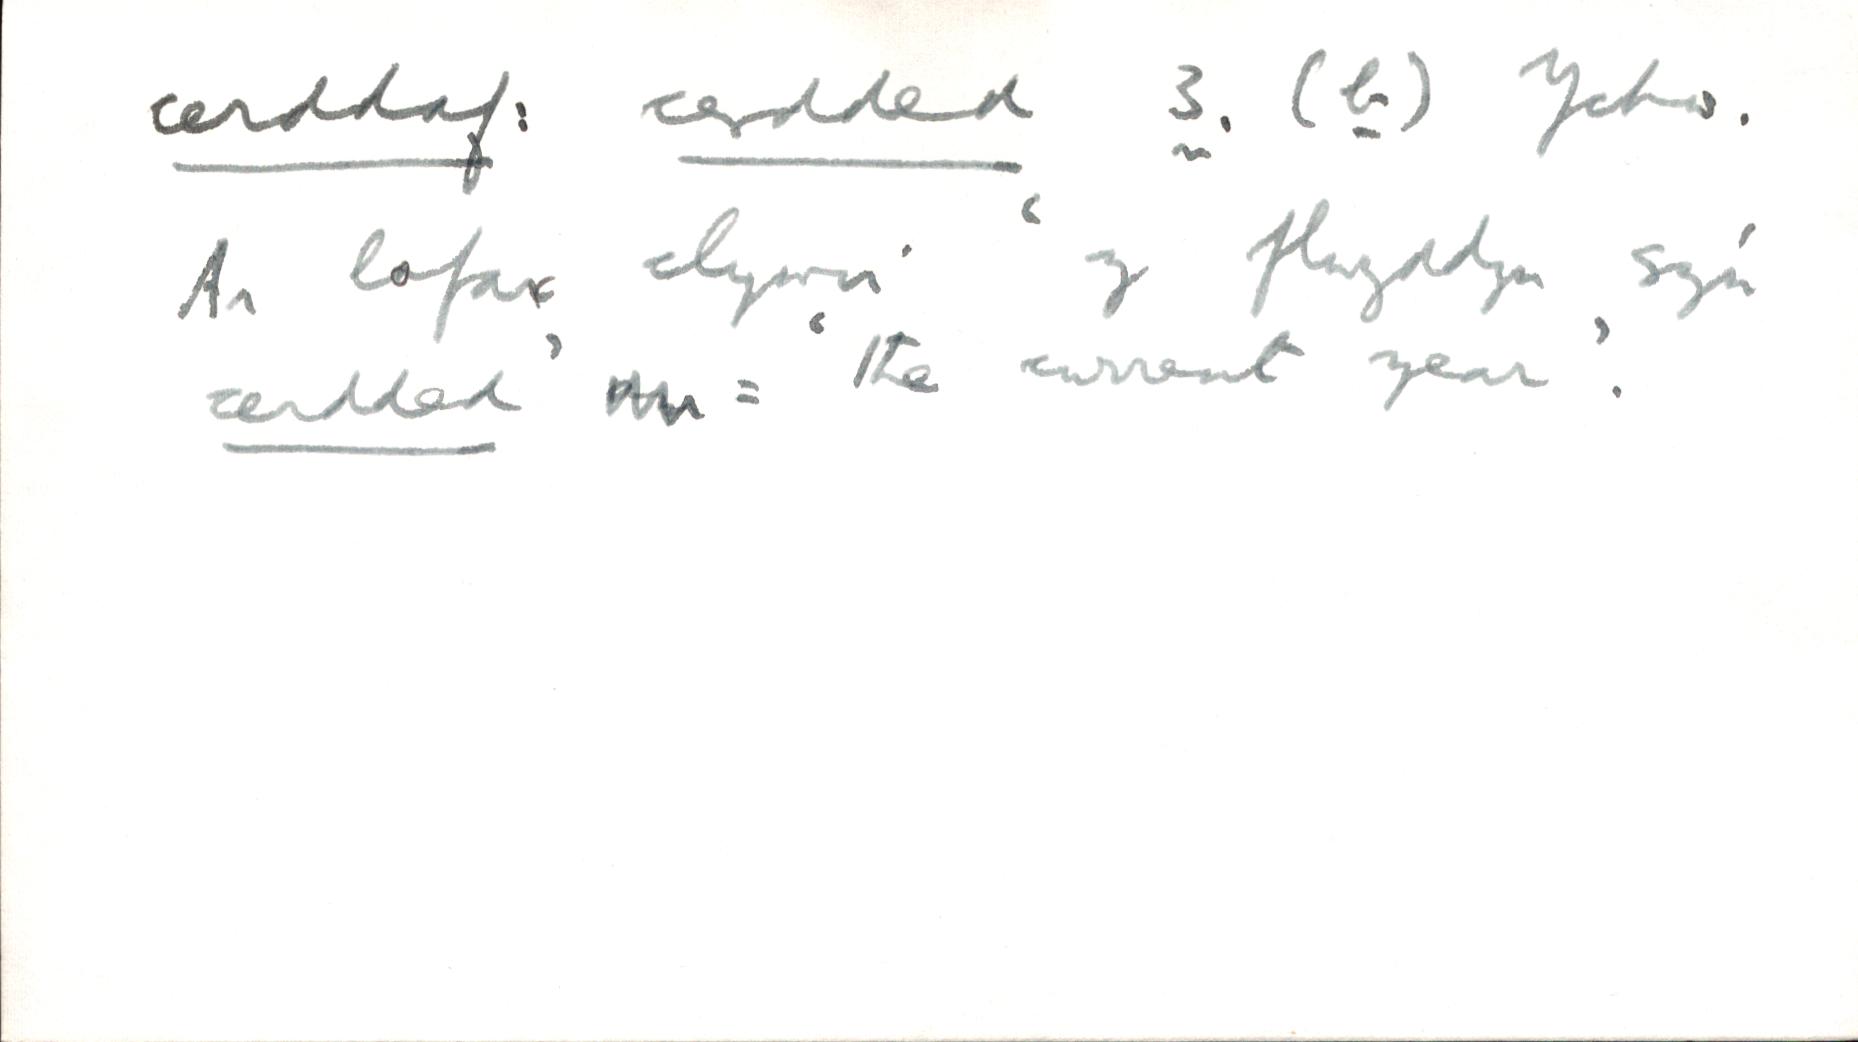 cerddaf: cerdded 3. (b) Ychw.
Ar lafar clywir 'y flwyddyn sy'n
cerdded' = 'the current year'.